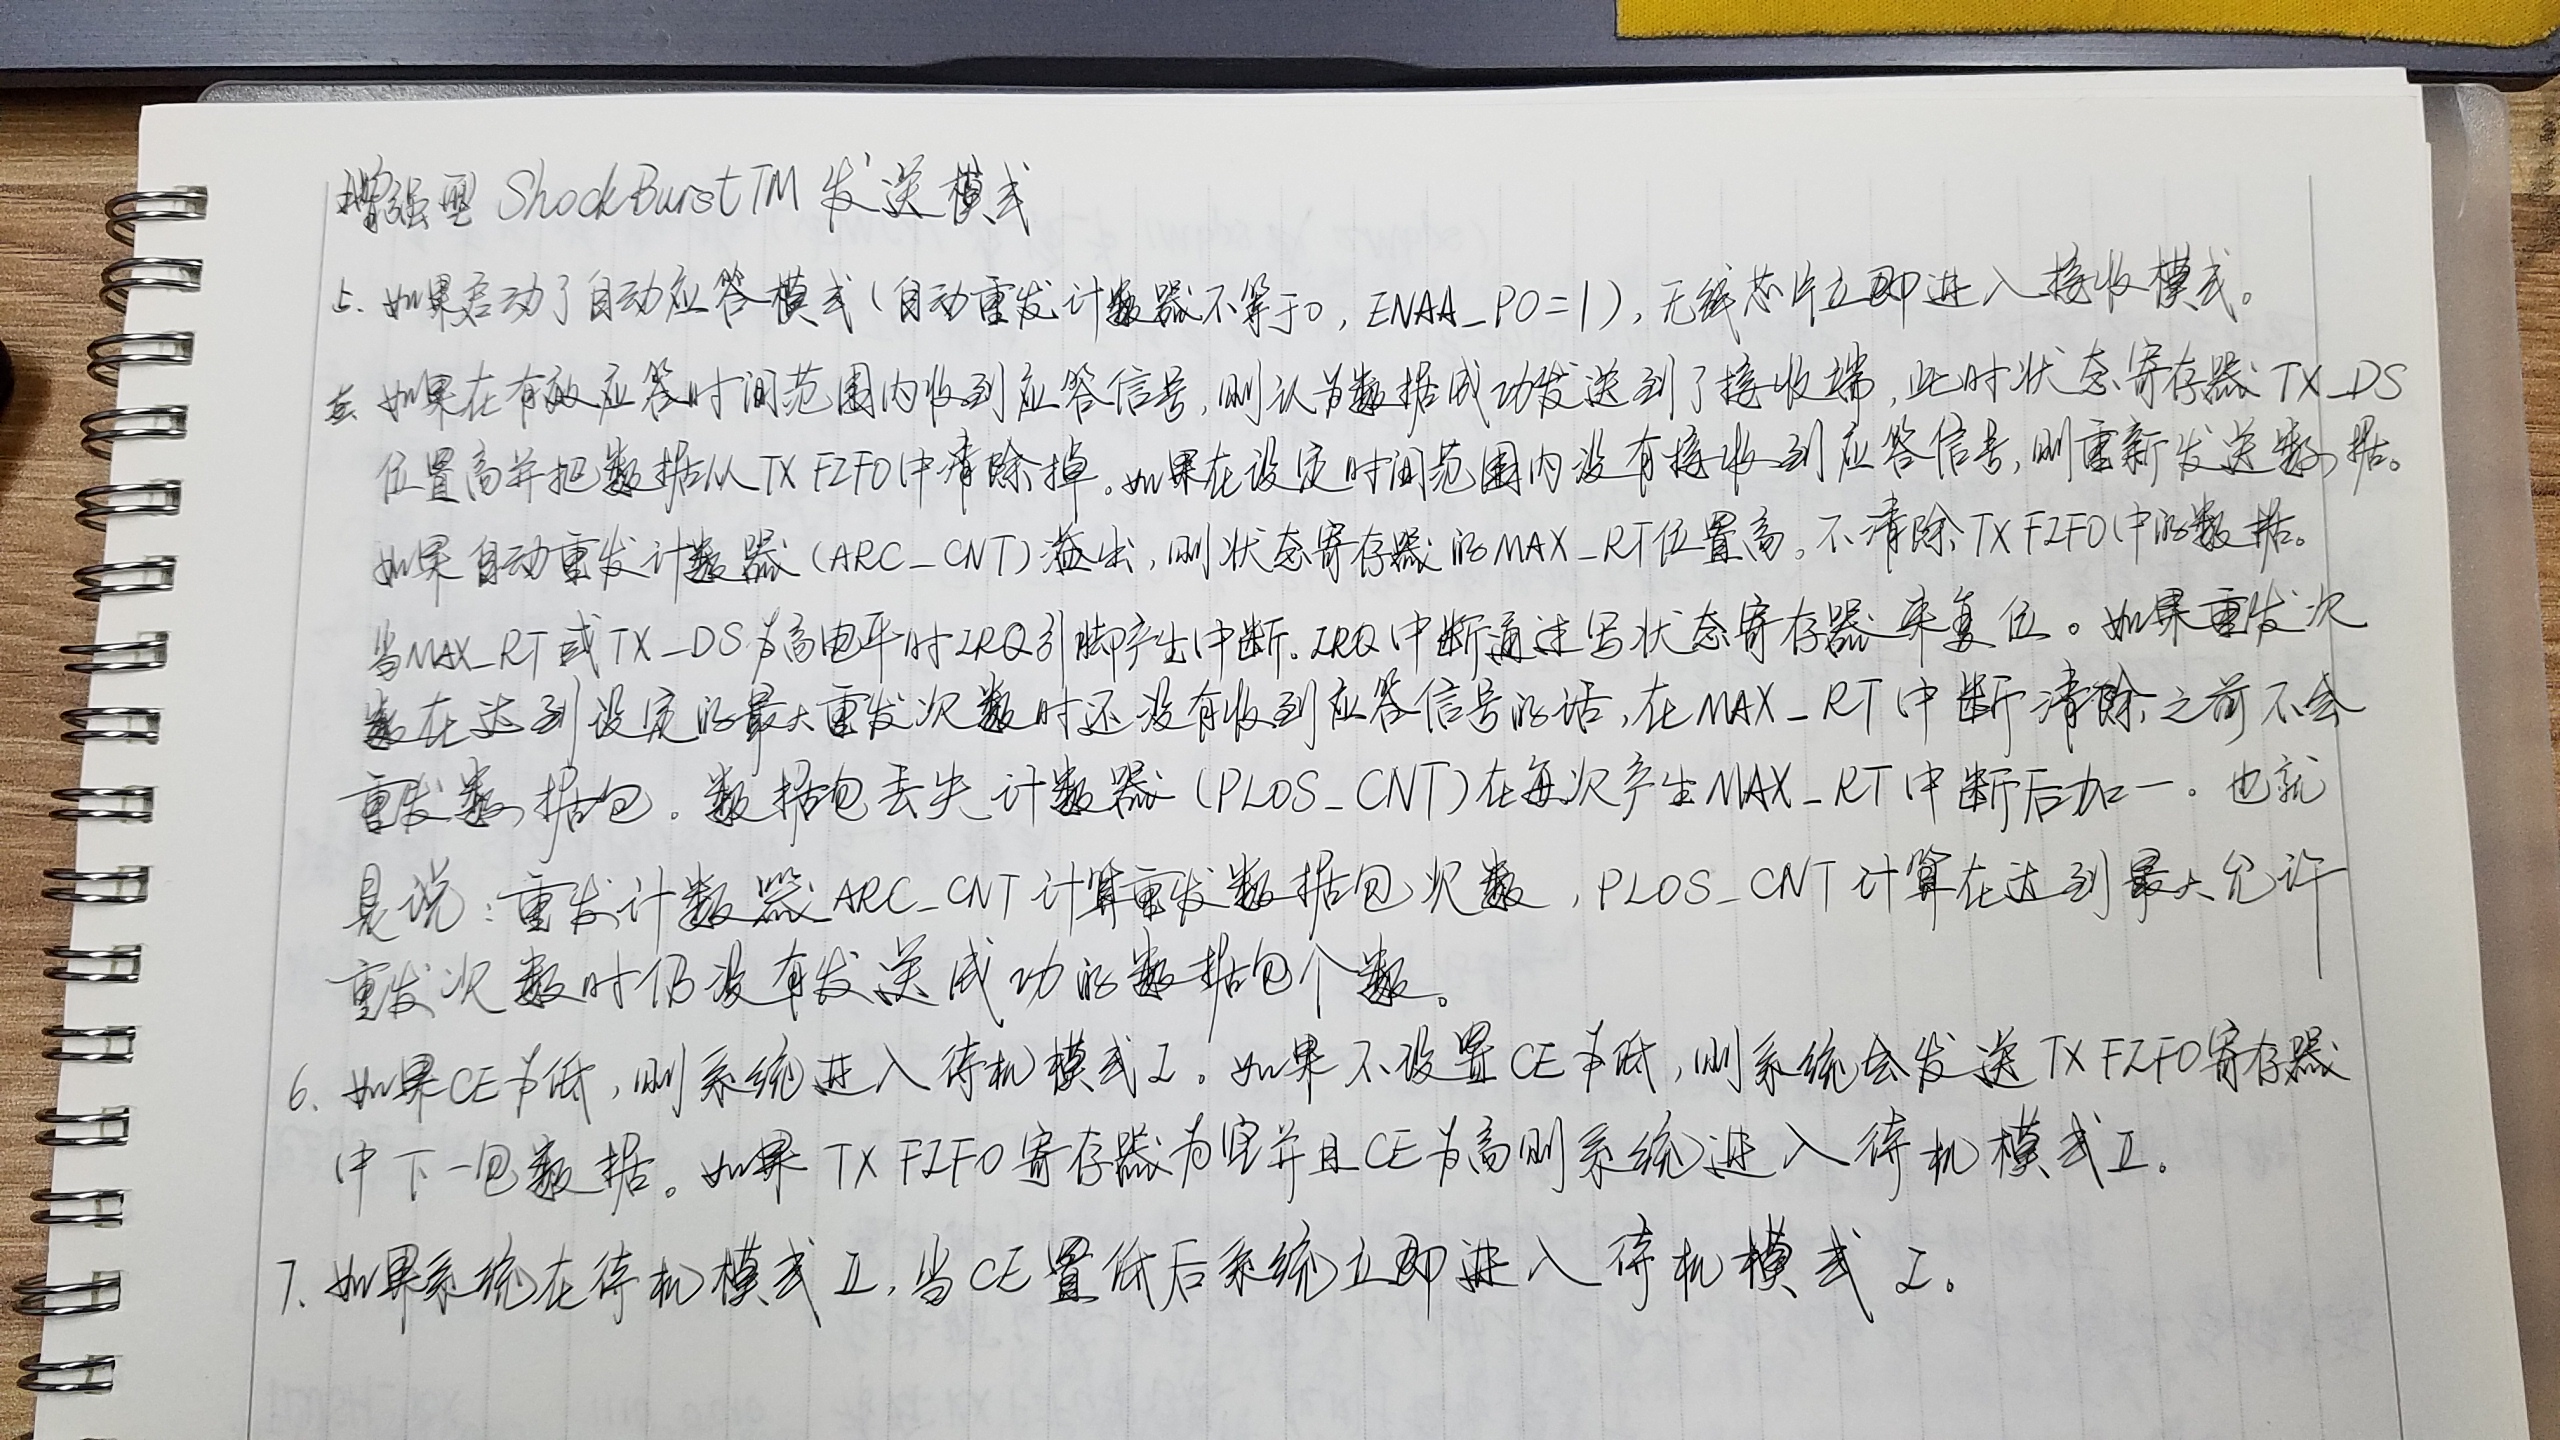 增强型 ShockBurstTM 发送模式
5. 如果启动了自动应答模式(自动重发计数器不等于0, ENAA_P0=1), 无线芯片立即进入接收模式。
如果在有效应答时间范围内收到应答信号, 则认为数据成功发送到了接收端, 此时状态寄存器 TX_DS
位置高并把数据从 TX FIFO 中清除掉。如果在设定时间范围内没有接收到应答信号, 则重新发送数据。
如果自动重发计数器 (ARC_CNT) 溢出, 则状态寄存器的MAX_RT位置高。不清除 TX FIFO 中的数据。
当MAX_RT 或 TX_DS 为高电平时IRQ引脚产生中断。IRQ中断通过写状态寄存器来复位。如果重发次
数在达到设定的最大重发次数时还没有收到应答信号的话, 在 MAX_RT 中断清除之前不会
重发数据包。数据包丢失计数器 (PLOS_CNT) 在每次产生 MAX_RT 中断后加一. 也就
是说: 重发计数器 ARC_CNT 计算重发数据包次数, PLOS_CNT 计算在达到最大允许
重发次数时仍没有发送成功的数据包个数。
6. 如果CE为低, 则系统进入待机模式I。如果不设置CE为低, 则系统会发送 TX FIFO 寄存器
中下一包数据。如果 TX FIFO 寄存器为空并且CE为高则系统进入待机模式II。
7. 如果系统在待机模式 II, 当CE置低后系统立即进入待机模式 I。